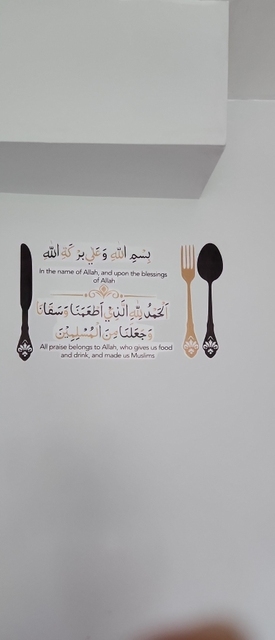 بِسْمِ اللهِ وَعَلَى بَرَكَةِ اللهِ
In the name of Allah, and upon the blessings
of Allah
اَلْحَمْدُ لِلّٰهِ الَّذِيْ اَطْعَمَنَا وَسَقَانَا
وَجَعَلَنَا مِنَ الْمُسْلِمِيْنَ
All praise belongs to Allah, who gives us food
and drink, and made us Muslims